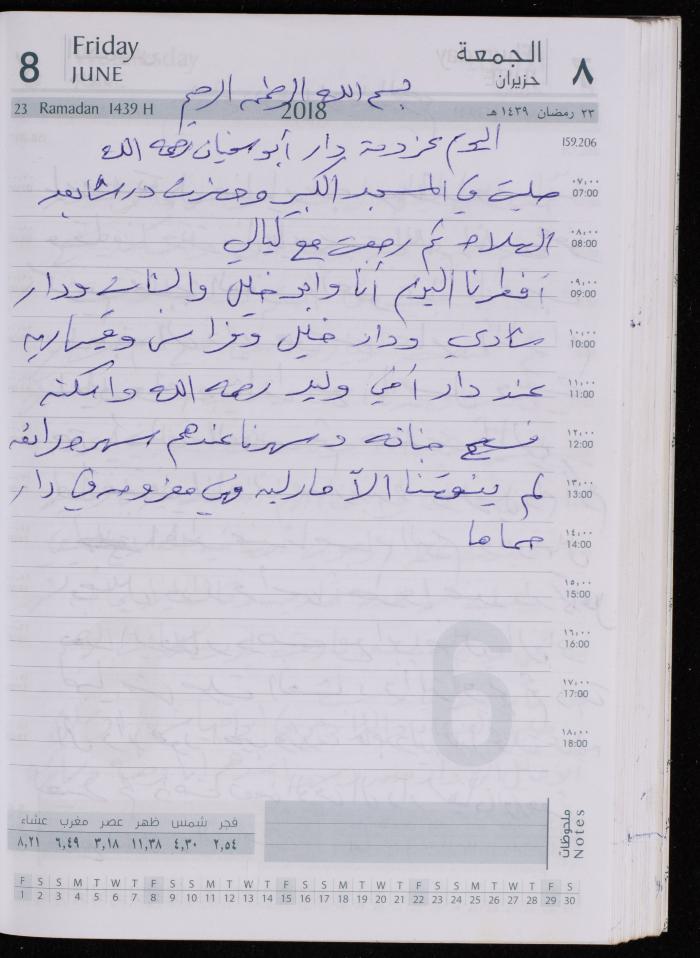 8
Friday
JUNE
الجمعة
حزيران
٨
بسم الله الرحمن الرحيم
23 Ramadan 1439 H
2018
٢٣ رمضان ١٤٣٩ هـ
159.206
اليوم عزومة دار أبو سفيان رحمه الله
٠٧,٠٠
07:00
صليت في المسجد الكبير وحضرت درسا بعد
٠٨,٠٠
08:00
الصلاة ثم رجعت مع ليالي
٠٩,٠٠
09:00
أفطرنا اليوم أنا وابو خليل والشباب ودار
١٠,٠٠
10:00
شادي ودار خليل وفراس
١١,٠٠
11:00
عند دار أخي وليد رحمه الله واسكنه
١٢,٠٠
12:00
فسيح جنانه وسهرنا عندهم سهرة رائعة
١٣,٠٠
13:00
لم ينقصنا الا مارليه وهي معزومة في دار
١٤,٠٠
14:00
حماها
١٥,٠٠
15:00
١٦,٠٠
16:00
١٧,٠٠
17:00
١٨,٠٠
18:00
6
فجر شمس ظهر عصر مغرب عشاء
٢,٥٤ ٤,٣٠ ١١,٣٨ ٣,١٨ ٦,٤٩ ٨,٢١
ملحوظات
Notes
F S S M T W T F S S M T W T F S S M T W T F S S M T W T F S
1 2 3 4 5 6 7 8 9 10 11 12 13 14 15 16 17 18 19 20 21 22 23 24 25 26 27 28 29 30